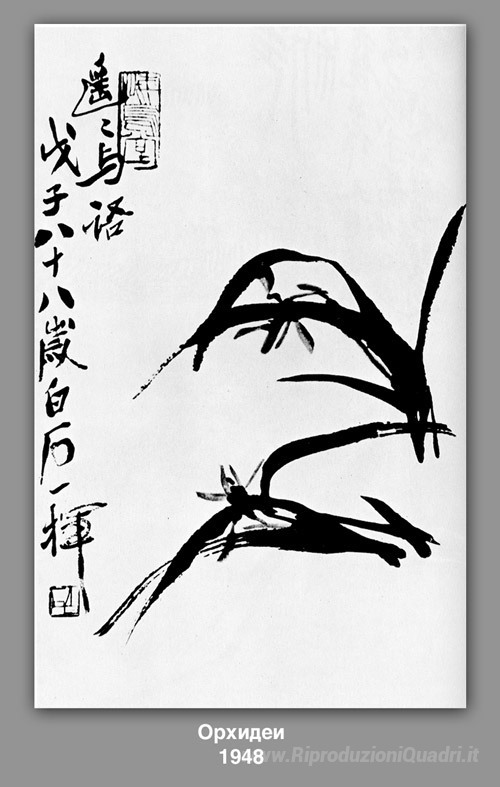 遥〻与語
戊子八十八歲白石一揮
Орхидеи
1948
www.RiproduzioniQuadri.it